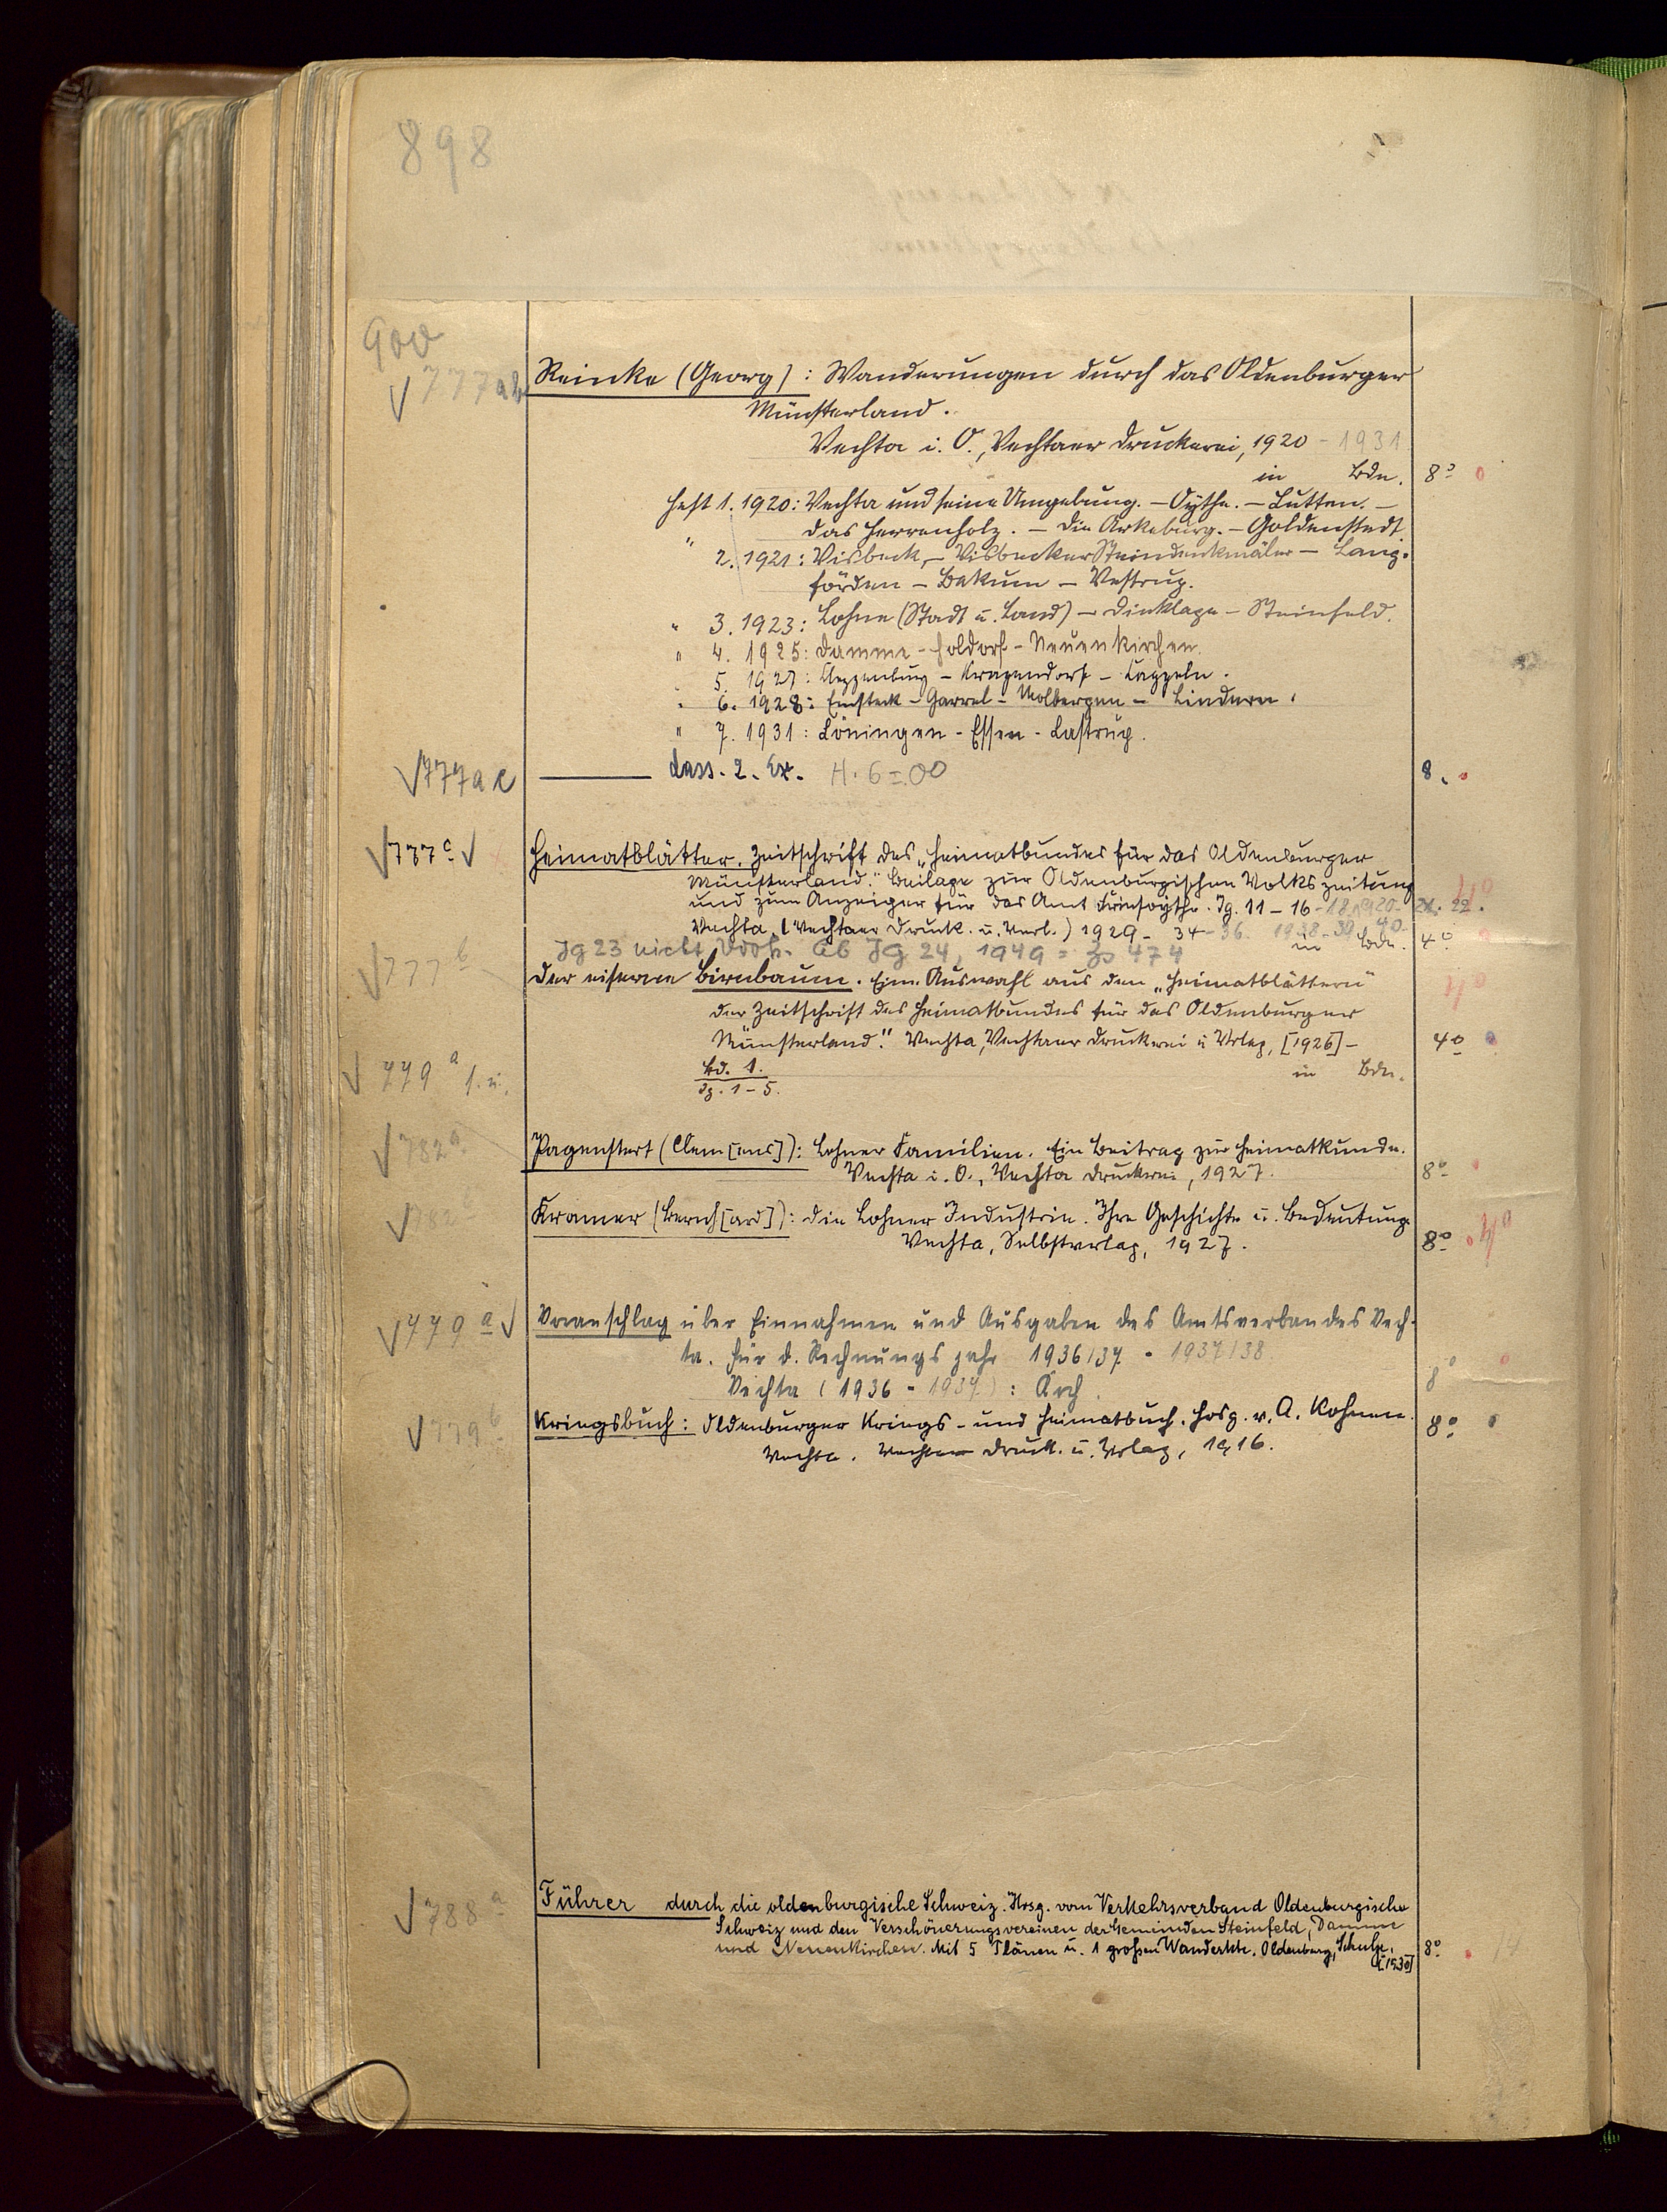 898
900
√777ab Reinke (Georg): Wanderungen durch das Oldenburger
Münsterland.
Vechta i. O., Vechtaer Druckerei, 1920 - 1931
in Bdn. 8°
Heft 1. 1920: Vechta und seine Umgebung. – Oythe. – Lutten. –
Das Herrenholz. – Die Arkeburg. – Goldenstedt
" 2. 1921: Visbeck – Visbecker Steindenkmäler – Lang-
förden – Bakum – Vestrup.
" 3. 1923: Lohne (Stadt u. Land) – Dinklage – Steinfeld.
" 4. 1925: Damme – Holdorf – Neuenkirchen.
" 5. 1927: Cloppenburg – Krapendorf – Cappeln.
" 6. 1928: Emsteck – Garrel – Molbergen – Lindern.
" 7. 1931: Löningen - Essen - Lastrup.
√777ac ——— dass. 2. Ex. H. 6 = 00 8.
√777c √ Heimatblätter. Zeitschrift des „Heimatbundes für das Oldenburger
Münsterland." Beilage zur Oldenburgischen Volkszeitung
und zum Anzeiger für das Amt Friesoythe. Jg. 11 – 16 - 18, 19, 20 - 21. 22.
Vechta, (Vechtaer Druck. u. Verl.) 1929 - 34 - 36. 1938 - 39 40.
in Bdn. 4°
Jg 23 nicht vorh. Ab Jg 24, 1949 = Zs 474
√777b Der eiserne Birnbaum. Eine Auswahl aus den „Heimatblättern"
der Zeitschrift des Heimatbundes für das Oldenburger
Münsterland." Vechta, Vechtaer Druckerei u. Verlag, [1926] – 4°
√779a Bd. 1. in Bdn.
Jg. 1 – 5.
√782a Pagenstert (Clem[ens]): Lohner Familien. Ein Beitrag zur Heimatkunde.
Vechta i. O., Vechta Druckerei, 1927. 8°
√ Kramer (Bernh[ard]): Die Lohner Industrie. Ihre Geschichte u. Bedeutung.
Vechta, Selbstverlag, 1927. 8°
√779a √ Voranschlag über Einnahmen und Ausgaben des Amtsverbandes Vech-
ta. für d. Rechnungsjahr 1936/37 - 1937/38
Vechta (1936 - 1937): 8°
√779b Kriegsbuch: Oldenburger Kriegs- und Heimatbuch. Hrsg. v. A. Kohnen. 8°
Vechta. Vechtaer Druck. u. Verlag, 1916.
√788a Führer durch die oldenburgische Schweiz. Hrsg. vom Verkehrsverband Oldenburgische
Schweiz und den Verschönerungsvereinen der Gemeinden Steinfeld, Damme
und Neuenkirchen. Mit 5 Plänen u. 1 großen Wanderkte. Oldenburg, Schulze, 8°
[1930]